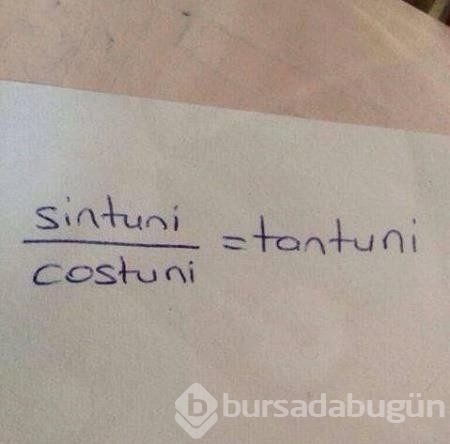 sintuni
costuni
=tantuni
b bursadabugün